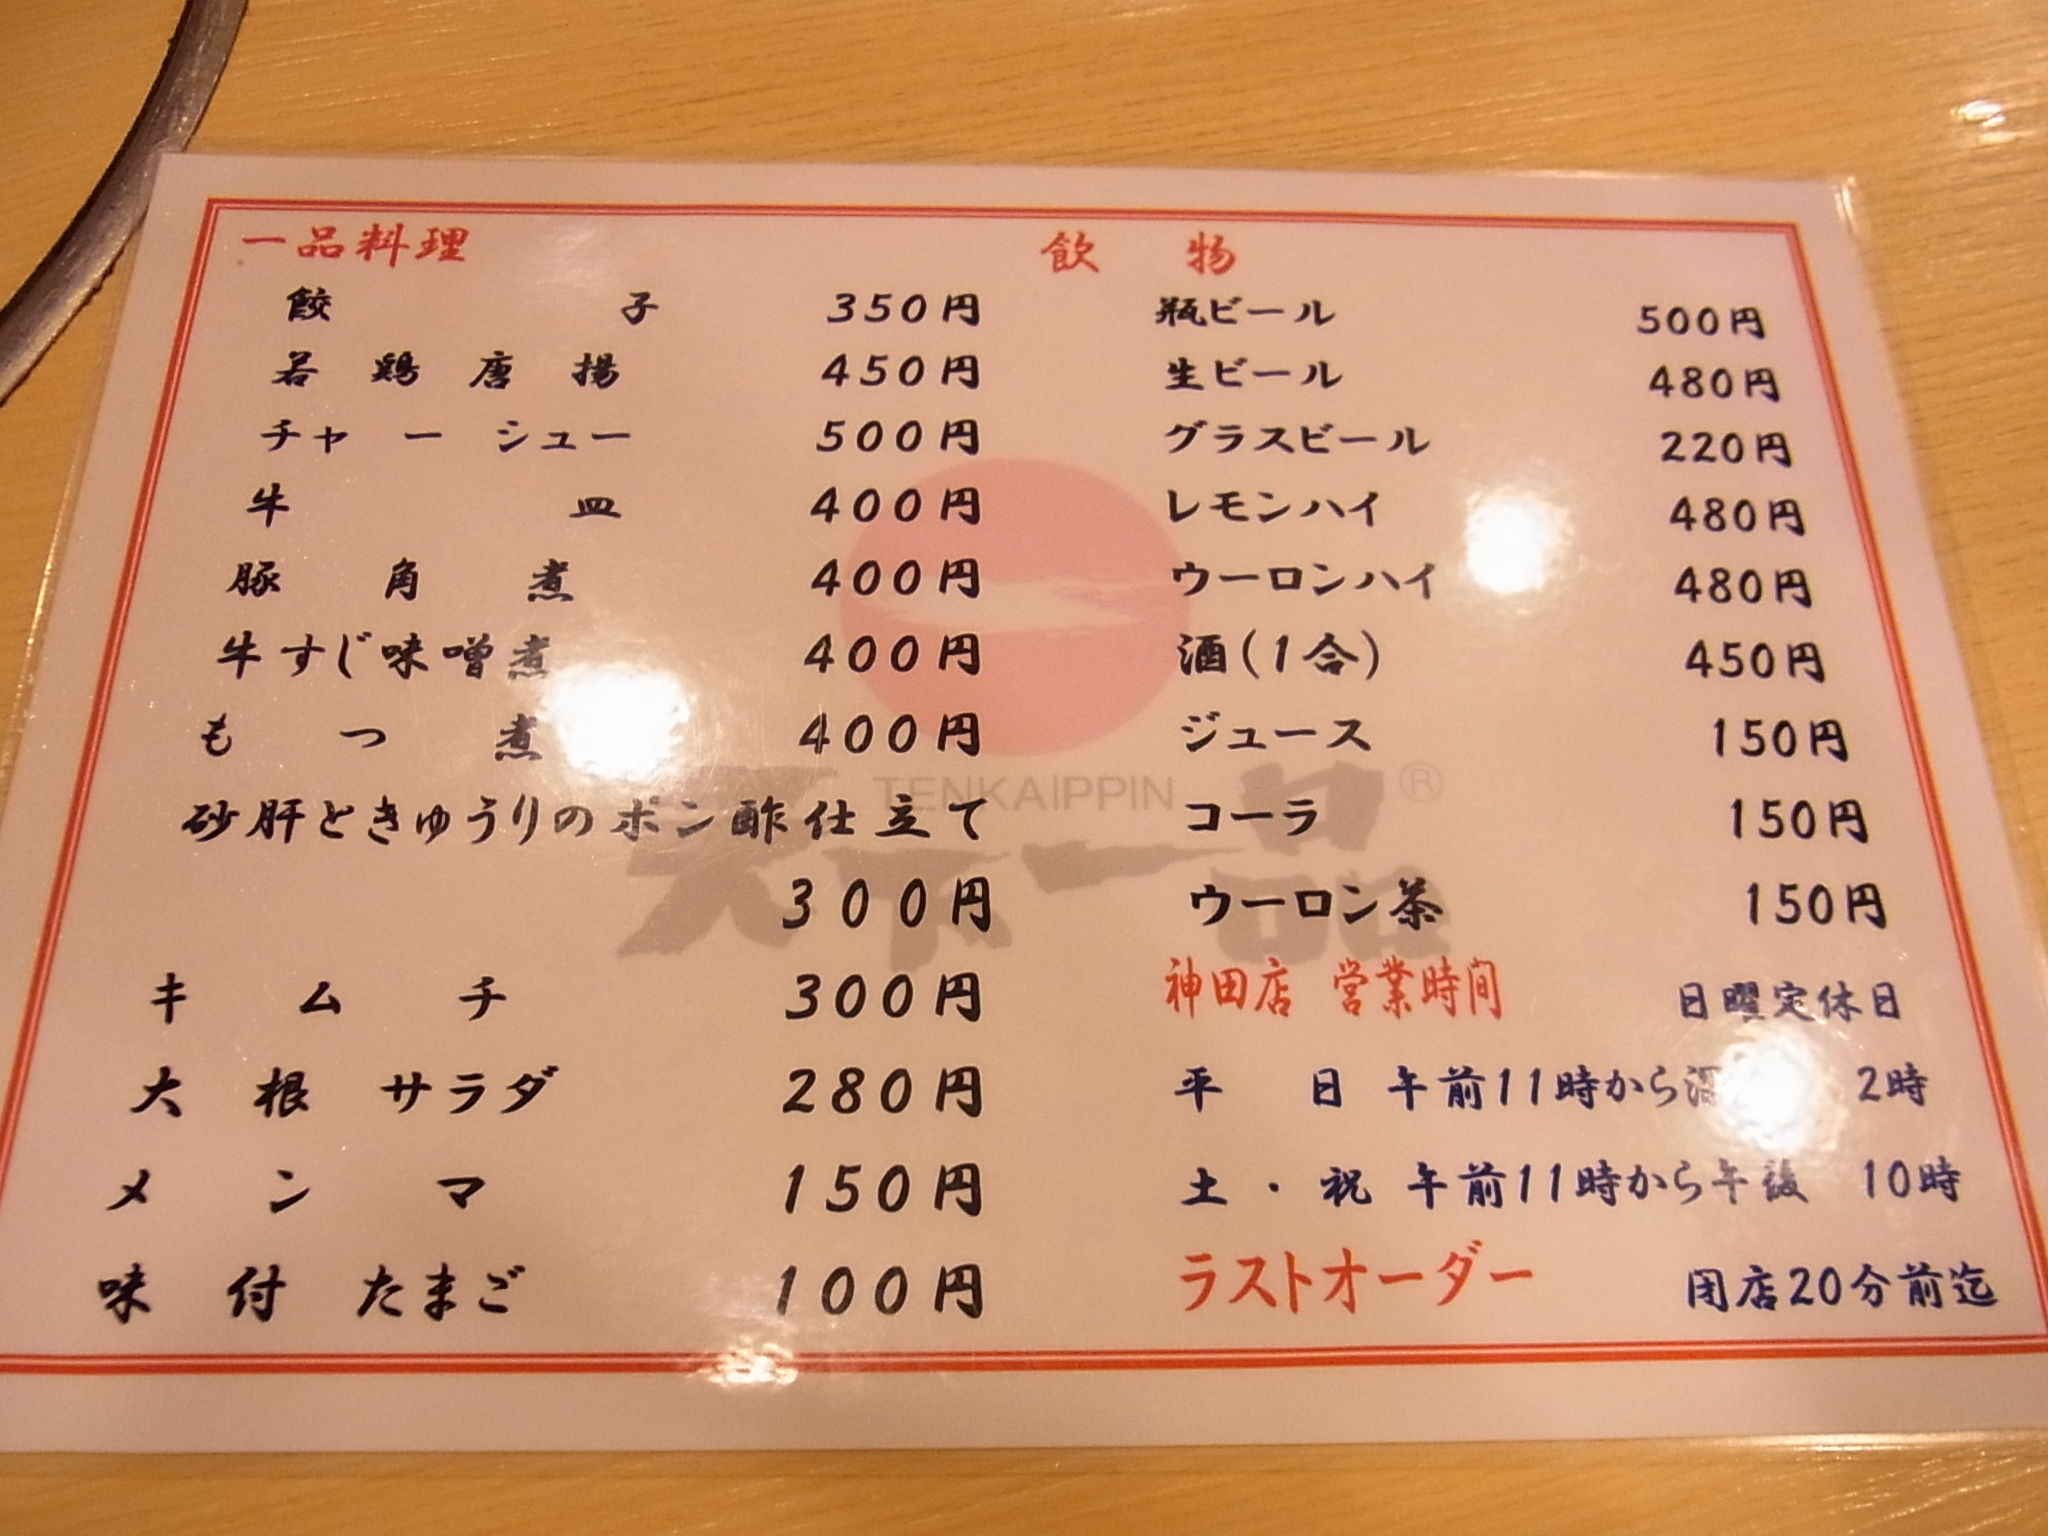 一品料理
餃子 350円
若鶏唐揚 450円
チャーシュー 500円
牛皿 400円
豚角煮 400円
牛すじ味噌煮 400円
もつ煮 400円
砂肝ときゅうりのポン酢仕立て
300円
キムチ 300円
大根サラダ 280円
メンマ 150円
味付たまご 100円
飲物
瓶ビール 500円
生ビール 480円
グラスビール 220円
レモンハイ 480円
ウーロンハイ 480円
酒(1合) 450円
ジュース 150円
コーラ 150円
ウーロン茶 150円
神田店 営業時間 日曜定休日
平日 午前11時から 2時
土・祝 午前11時から午後 10時
ラストオーダー 閉店20分前迄
TENKAIPPIN
天下一品®